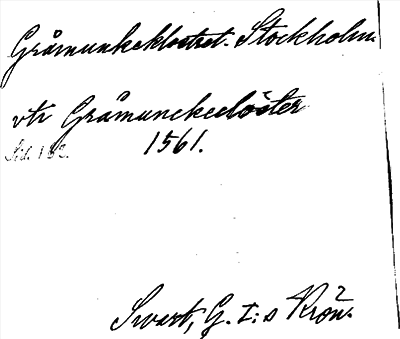 Gråmunkeklostret. Stockholm.
vti Gråmunckeclöster
1561.
Sid. 132.
Swart, G. I:s Krön.